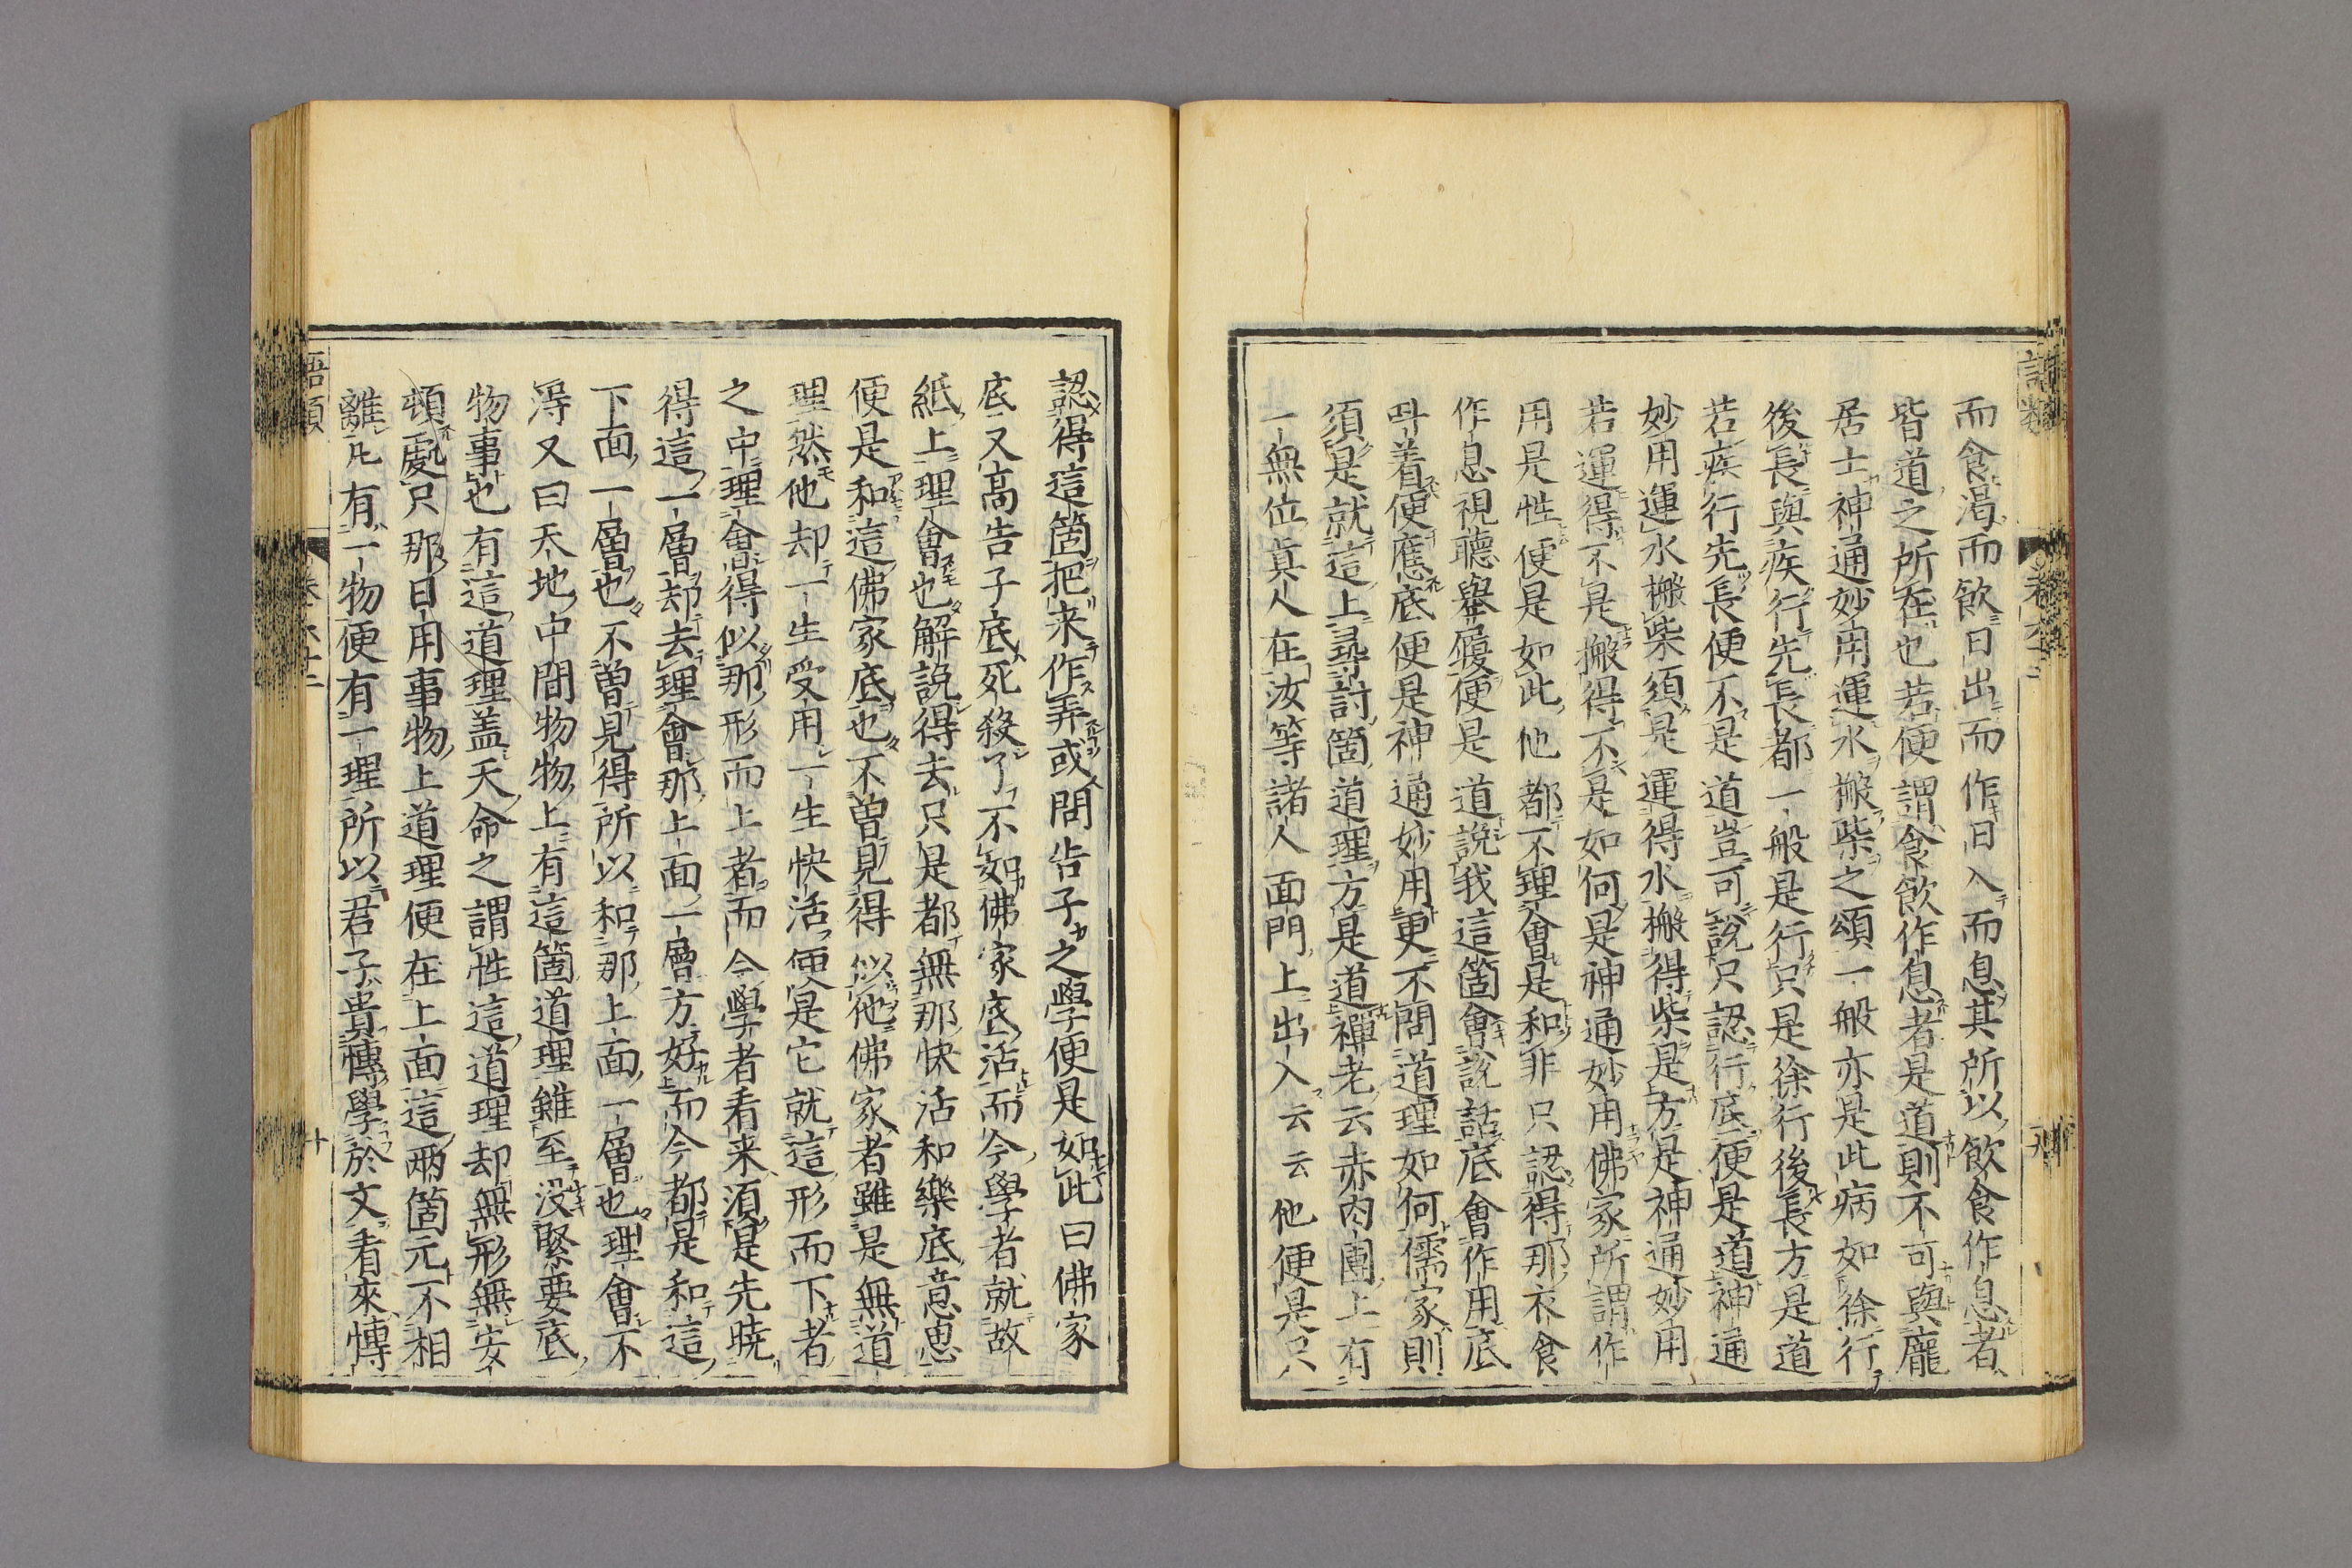 而食渴而飲日出而作日入而息其所以飲食作息者
皆道之所在也若便謂食飲作息者是道則不可與龐
居士神通妙用運水搬柴之頌一般亦是此病如徐行
後長與疾行先長都一般是行只是徐行後長方是道
若疾行先長便不是道豈可說只認行底便是道神通
妙用運水搬柴須是運得水搬得柴是方是神通妙用
若運得不是搬得不是如何是神通妙用佛家所謂作
用是性便是如此他都不理會是和非只認得那衣食
作息視聽擧履便是道說我這箇會說話底會作用底
叫着便應底便是神通妙用更不問道理如何儒家則
須是就這上尋討箇道理方是道禪老云赤肉團上有
一無位真人在汝等諸人面門上出入云云他便是只
認得這箇把來作弄或問告子之學便是如此曰佛家
底又高告子底死殺了不如佛家底活而今學者就故
紙上理會也解說得去只是都無那快活和樂底意思
便是和這佛家底也不曽見得似他佛家者雖是無道
理然他却一生受用一生快活便是它就這形而下者
之中理會得似那形而上者而今學者看来須是先曉
得這一層却去理會那上面一層方好而今都是和這
下面一層也不曽見得所以和那上面一層也理會不
得又曰天地中間物物上有這箇道理雖至没緊要底
物事也有這道理盖天命之謂性這道理却無形無安
頓處只那日用事物上道理便在上面這兩箇元不相
離凡有一物便有一理所以君子貴博學於文看來博
語類
卷六十二
十